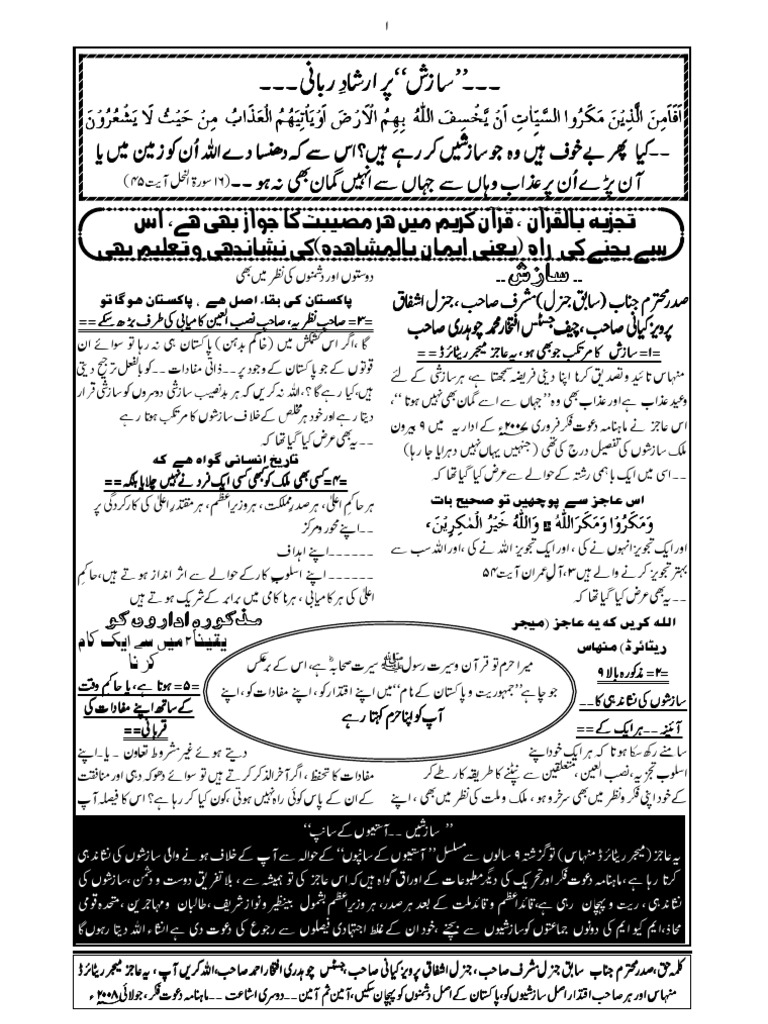 ۱
۔۔۔’’سازش‘‘ پر ارشادِ ربانی ۔۔۔
اَفَاَمِنَ الَّذِیْنَ مَکَرُوا السَّیِّاٰتِ اَنْ یَّخْسِفَ اللّٰہُ بِہِمُ الْاَرْضَ اَوْیَاْتِیَہُمُ الْعَذَابُ مِنْ حَیْثُ لَا یَشْعُرُوْنَ
۔۔کیا پھر بے خوف ہیں وہ جو سازشیں کر رہے ہیں؟ اس سے کہ دھنسا دے اللہ اُن کو زمین میں یا
آن پڑے اُن پر عذاب وہاں سے جہاں سے انہیں گمان بھی نہ ہو ۔۔(۱۶ سورۃ النحل آیت ۴۵)
تجزیہ بالقرآن ، قرآن کریم میں ہر مصیبت کا جواز بھی ہے، اس
سے بچنے کی راہ (یعنی ایمان بالمشاہدہ) کی نشاندہی و تعلیم بھی
۔۔ سازش ۔۔
صدر محترم جناب (سابق جنرل) مشرف صاحب ، جنرل اشفاق
پرویز کیانی صاحب ، چیف جسٹس افتخار محمد چوہدری صاحب
=۱= سازش کا مرتکب جو بھی ہو، یہ عاجز میجر ریٹائرڈ ==
منہاس تائید و تصدیق کرنا اپنا دینی فریضہ سمجھتا ہے، ہر سازشی کے لئے
وعید عذاب ہے اور عذاب بھی وہ ’’جہاں سے اسے گمان بھی نہیں ہوتا ‘‘،
اس عاجز نے ماہنامہ دعوت فکر فروری ۲۰۰۷ء کے اداریہ میں ۹ بیرون
ملک سازشوں کی تفصیل درج کی تھی (جنہیں یہاں نہیں دہرایا جا رہا)
۔۔اسی میں ایک باہمی رشتہ کے حوالے سے عرض کیا گیا تھا کہ
اس عاجز سے پوچھیں تو صحیح بات
وَمَکَرُوْا وَمَکَرَاللّٰہُ ؕ وَاللّٰہُ خَیْرُ الْمٰکِرِیْنَ،
اور ایک تجویز انہوں نے کی ، اور ایک تجویز اللہ نے کی ، اور اللہ سب سے
بہتر تجویز کرنے والے ہیں ۳، آل عمران آیت ۵۴
۔۔ یہ بھی عرض کیا گیا تھا کہ
اللہ کریں کہ یہ عاجز (میجر
ریٹائرڈ) منہاس
=۲= مذکورہ بالا ۹
سازشوں کی نشاندہی کا۔۔
آئینہ ۔۔ ہر ایک کے ==
سامنے رکھ سکا ہوتا کہ ہر ایک خود اپنے
اسلوب تجزیہ، نصب العین، متعلقین سے نپٹنے کا طریقہ کار طے کر
کے خود اپنی فکر و نظر میں بھی سرخرو ہو ، ملک و ملت کی نظر میں بھی ، اپنے
دوستوں اور دشمنوں کی نظر میں بھی
پاکستان کی بقاء اصل ہے ، پاکستان ہو گا تو
=۳= صاحب نظریہ، صاحب نصب العین کامیابی کی طرف بڑھ سکے ==
گا ، اگر اس کشمکش میں (خاکم بدہن) پاکستان ہی نہ رہا تو سوائے ان
قوتوں کے جو پاکستان کے وجود پر ۔۔ذاتی مفادات ۔۔کو بالفعل ترجیح دیتی
ہیں، کیا رہے گا ؟، اللہ نہ کریں کہ ہر بدنصیب سازشی دوسروں کو سازشی قرار
دیتا رہے اور خود ہر مخلص کے خلاف سازشوں کا مرتکب ہوتا رہے
۔۔یہ بھی عرض کیا گیا تھا کہ
تاریخ انسانی گواہ ہے کہ
=۴= کسی بھی ملک کو کبھی کسی ایک فرد نے نہیں چلایا بلکہ ==
ہر حاکمِ اعلیٰ، ہر صدرِ مملکت ، ہر وزیرِ اعظم، ہر مقتدرِ اعلیٰ کی کارکردگی پر
۔۔اپنے محور و مرکز
۔۔۔۔۔۔اپنے اہداف
۔۔۔۔۔۔اپنے اسلوب کار کے حوالے سے اثر انداز ہوتے ہیں، حاکمِ
اعلیٰ کی ہر کامیابی ، ہر ناکامی میں برابر کے شریک ہوتے ہیں
مذکورہ اداروں کو
یقیناً ۲ میں سے ایک کام
کرنا
=۵= ہوتا ہے، یا حاکم وقت
کے ساتھ اپنے مفادات کی
قربانی ==
دیتے ہوئے غیر مشروط تعاون ۔ یا۔ اپنے
مفادات کا تحفظ ، اگر آخرالذکر کرتے ہیں تو سوائے دھوکہ دہی اور منافقت
کے ان کے پاس کوئی راہ نہیں ہوتی ، کون کیا کر رہا ہے؟ اس کا فیصلہ آپ
میرا حرم تو قرآن و سیرت رسول ﷺ سیرت صحابہؓ ہے، اس کے برعکس
جو چاہے ’’جمہوریت و پاکستان کے نام ‘‘ میں اپنے اقتدار کو، اپنے مفادات کو، اپنے
آپ کو اپنا حرم کہتا رہے
’’ سازشیں ۔۔ آستیوں کے سانپ ‘‘
یہ عاجز (میجر ریٹائرڈ منہاس) تو گزشتہ ۹ سالوں سے مسلسل ’’آستیوں کے سانپوں ‘‘ کے حوالہ سے آپ کے خلاف ہونے والی سازشوں کی نشاندہی
کرتا رہا ہے، ماہنامہ دعوت فکر اور تحریک کی دیگر مطبوعات کے اوراق گواہ ہیں کہ اس عاجز کی تو ہمیشہ سے ، بلا تفریق دوست و دشمن، سازشوں کی
نشاندہی ، ریت و پہچان رہی ہے، قائد اعظم و قائد ملت کے بعد ہر صدر، ہر وزیرِ اعظم بشمول بینظیر و نواز شریف، طالبان و مہاجرین، متحدہ قومی
محاذ، ایم کیو ایم کی دونوں جماعتوں کو سازشوں سے بچنے ، خود ان کے غلط اجتہادی فیصلوں سے رجوع کی دعوت دی ہے انشاء اللہ دیتا رہوں گا
کلمہ حق، صدر محترم جناب سابق جنرل مشرف صاحب، جنرل اشفاق پرویز کیانی صاحب، جسٹس چوہدری افتخار احمد صاحب، اللہ کریں آپ ، یہ عاجز میجر ریٹائرڈ
منہاس اور ہر صاحب اقتدار اصل سازشیوں کو، پاکستان کے اصل دشمنوں کو پہچان سکیں، آمین ثم آمین۔۔ دوسری اشاعت ۔۔ ماہنامہ دعوت فکر، جولائی ۲۰۰۸ء